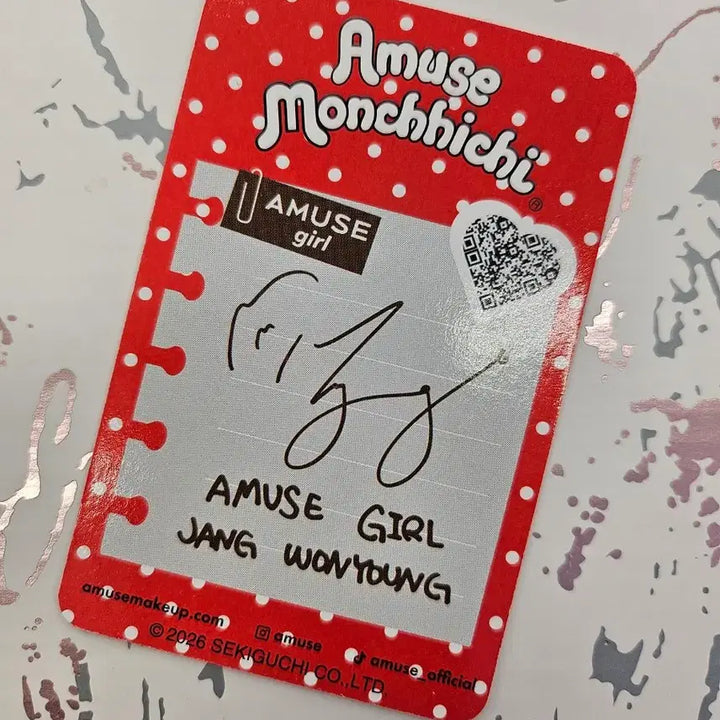 Amuse
Monchhichi
®
AMUSE
girl
AMUSE GIRL
JANG WONYOUNG
amusemakeup.com
amuse
amuse_official
© 2026 SEKIGUCHI CO.,LTD.